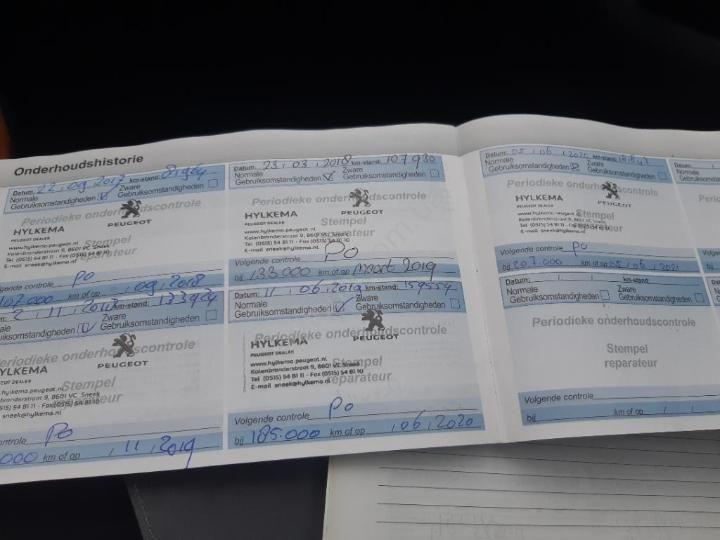 Onderhoudshistorie
Datum: 22.09.2017 km-stand:
Normale
Gebruiksomstandigheden
Zware
Gebruiksomstandigheden
Periodieke onderhoudscontrole
HYLKEMA
PEUGEOT DEALER
PEUGEOT
www.hylkema-peugeot.nl
Kolenbranderstraat 9, 8601 VC Sneek
Tel. (0515) 54 81 11 - Fax (0515) 54 81 10
E-mail sneek@hylkema.nl
Stempel
Volgende controle PO
107.000 km of op 09.2018
Datum: 23.03.2018 km-stand: 107930
Normale
Gebruiksomstandigheden
Zware
Gebruiksomstandigheden
Periodieke onderhoudscontrole
HYLKEMA
PEUGEOT DEALER
PEUGEOT
www.hylkema-peugeot.nl
Kolenbranderstraat 9, 8601 VC Sneek
Tel. (0515) 54 81 11 - Fax (0515) 54 81 10
E-mail sneek@hylkema.nl
Stempel
Volgende controle PO
bij 133.000 km of op maart 2019
2.11.2018 km-stand: 133924
Zware
Gebruiksomstandigheden
onderhoudscontrole
HYLKEMA
PEUGEOT DEALER
PEUGEOT
www.hylkema-peugeot.nl
Kolenbranderstraat 9, 8601 VC Sneek
sneek@hylkema.nl
Stempel
reparateur
controle PO
000 km of op .11.2019
Datum: 11.06.2019 km-stand: 159554
Normale
Gebruiksomstandigheden
Zware
Gebruiksomstandigheden
Periodieke onderhoudscontrole
HYLKEMA
PEUGEOT DEALER
PEUGEOT
www.hylkema-peugeot.nl
Kolenbranderstraat 9, 8601 VC Sneek
Tel. (0515) 54 81 11 - Fax (0515) 54 81 10
E-mail sneek@hylkema.nl
Stempel
reparateur
Volgende controle PO
bij 185.000 km of op .06.2020
Datum: 05.06.2020 km-stand:
Normale
Gebruiksomstandigheden
Zware
Gebruiksomstandigheden
Periodieke onderhoudscontrole
HYLKEMA
PEUGEOT DEALER
PEUGEOT
www.hylkema-peugeot.nl
Stempel
reparateur
Volgende controle PO
bij 207.000 km of op 05.06.2021
Datum: km-stand:
Normale
Gebruiksomstandigheden
Zware
Gebruiksomstandigheden
Periodieke onderhoudscontrole
Stempel
reparateur
Volgende controle
bij km of op